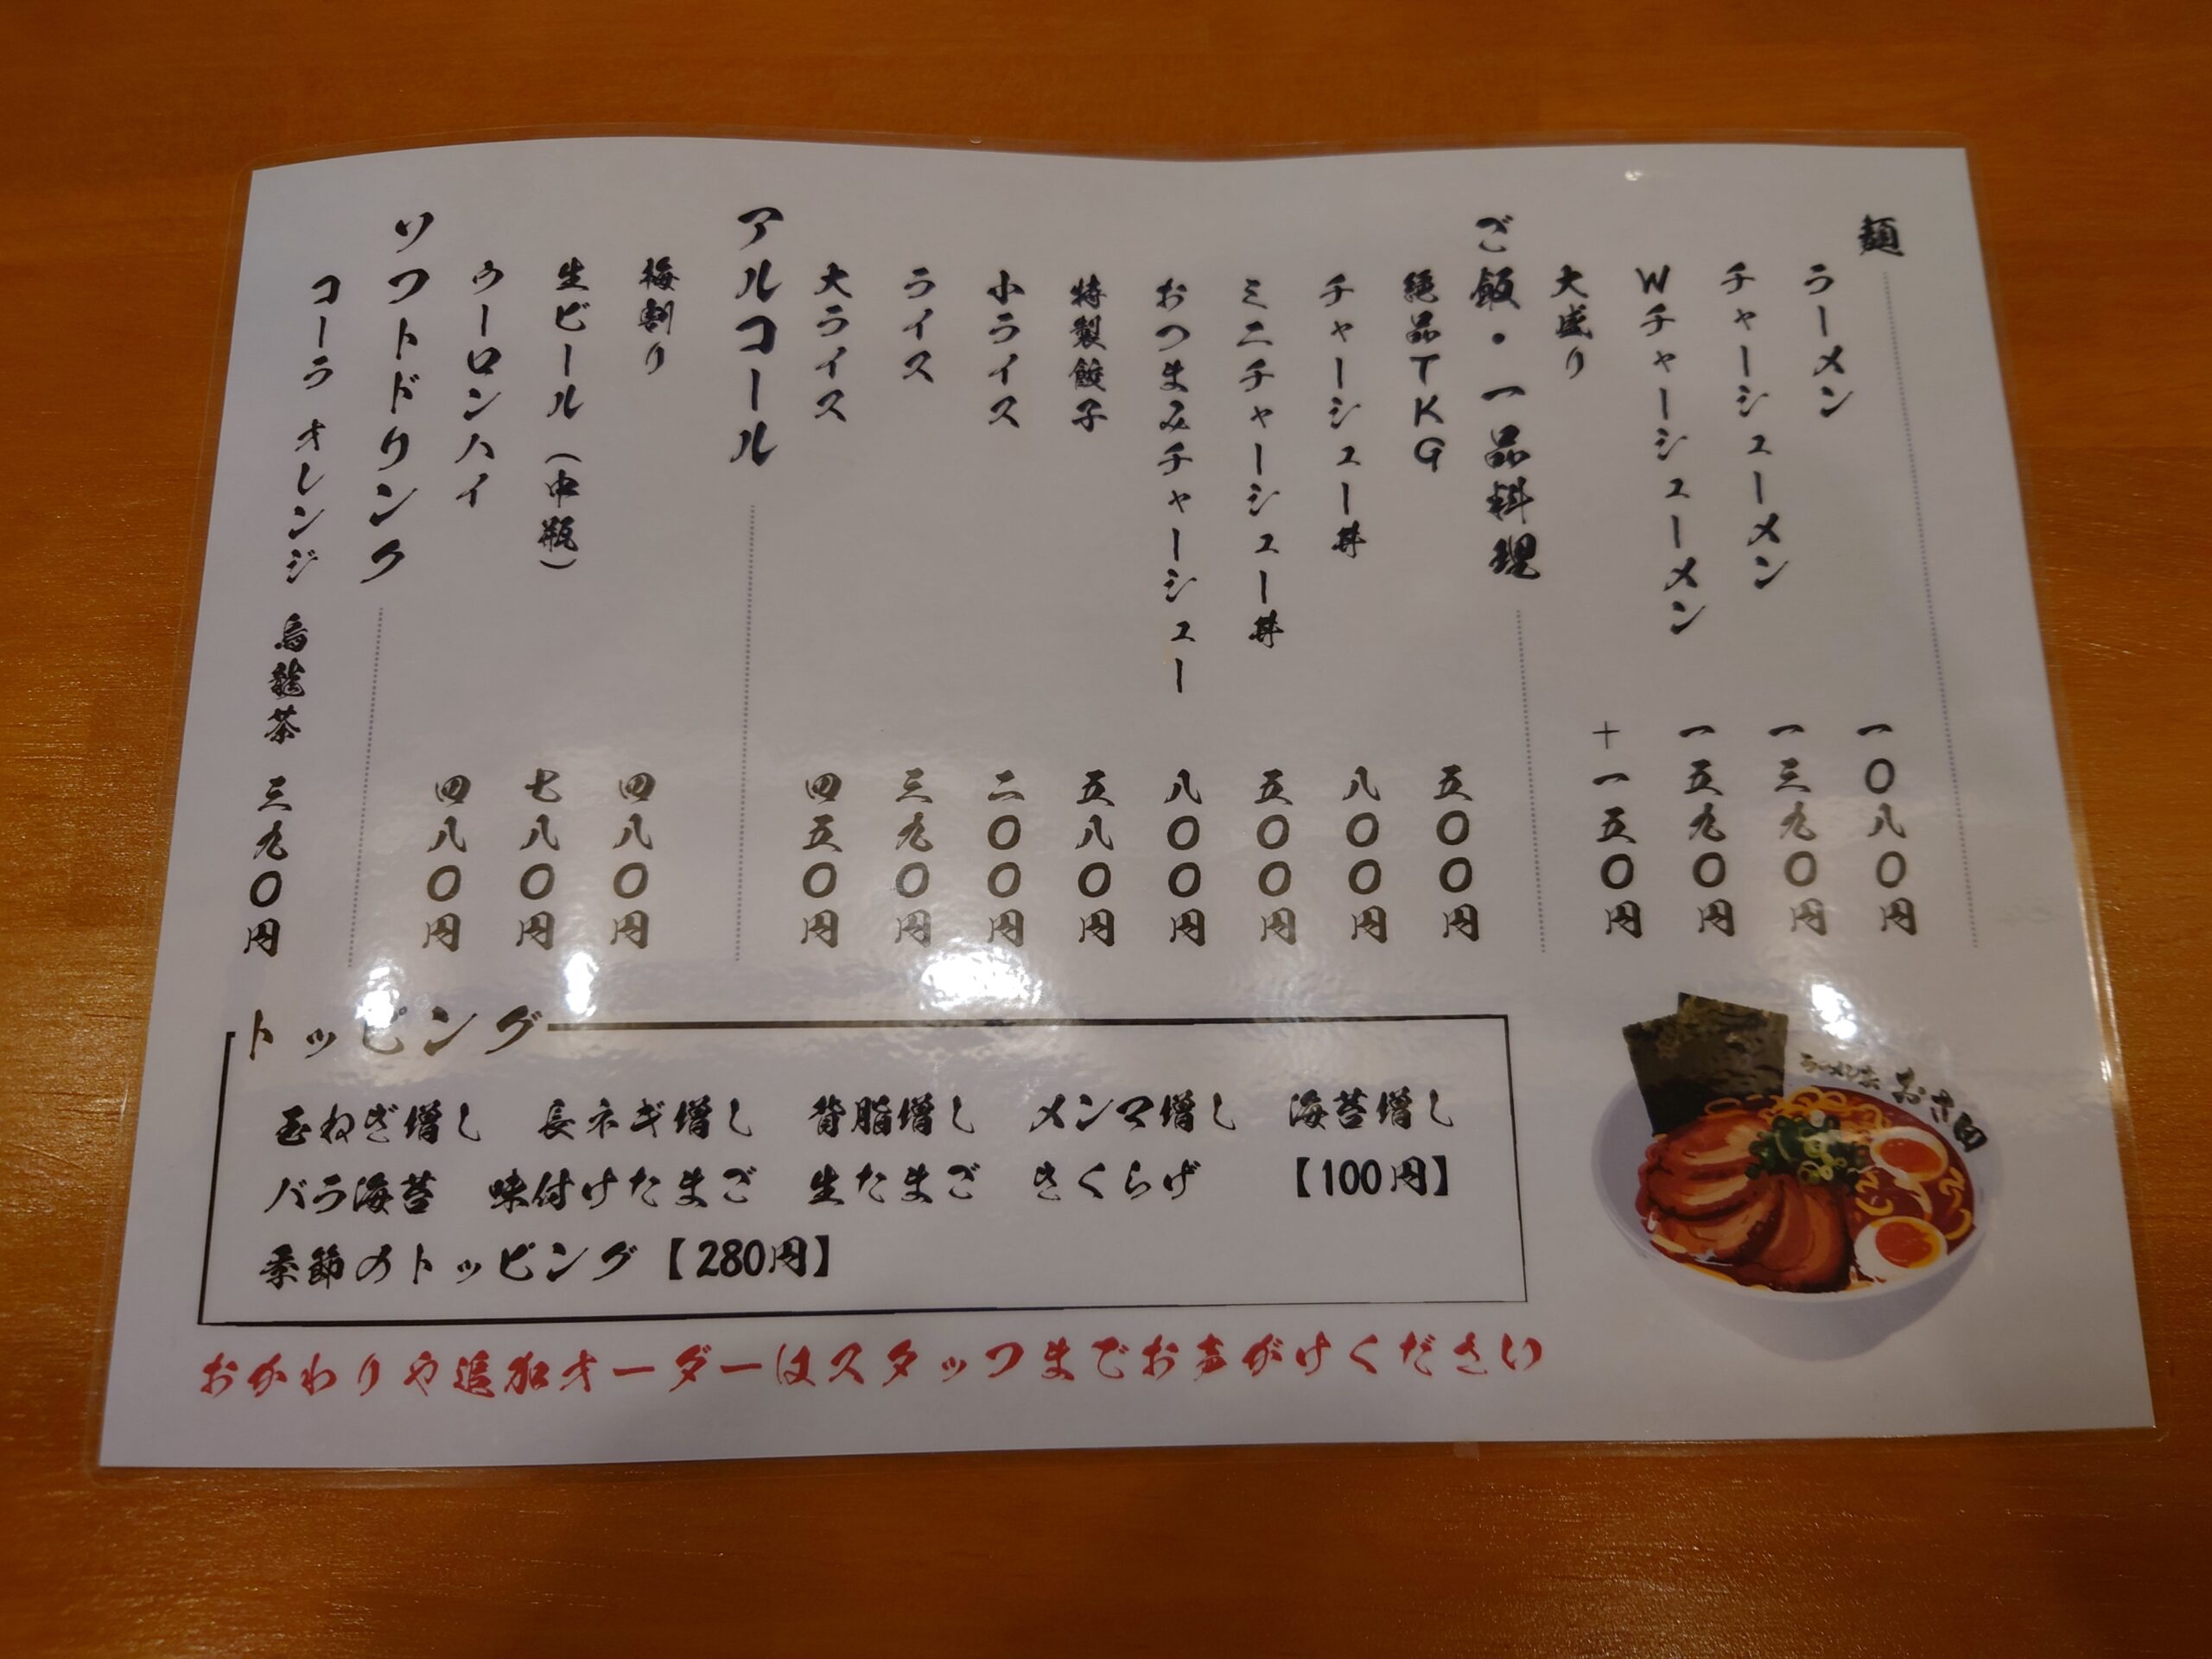 麺
ラーメン 一〇八〇円
チャーシューメン 一三九〇円
Wチャーシューメン 一五九〇円
大盛り +一五〇円
ご飯・一品料理
絶品TKG 五〇〇円
チャーシュー丼 八〇〇円
ミニチャーシュー丼 五〇〇円
おつまみチャーシュー 八〇〇円
特製餃子 五八〇円
小ライス 二〇〇円
ライス 三九〇円
大ライス 四五〇円
アルコール
梅割り 四八〇円
生ビール(中瓶) 七八〇円
ウーロンハイ 四八〇円
ソフトドリンク
コーラ オレンジ 烏龍茶 三九〇円
トッピング
玉ねぎ増し 長ネギ増し 背脂増し メンマ増し 海苔増し
バラ海苔 味付けたまご 生たまご きくらげ 【100円】
季節のトッピング【280円】
おかわりや追加オーダーはスタッフまでお声がけください
おさ田